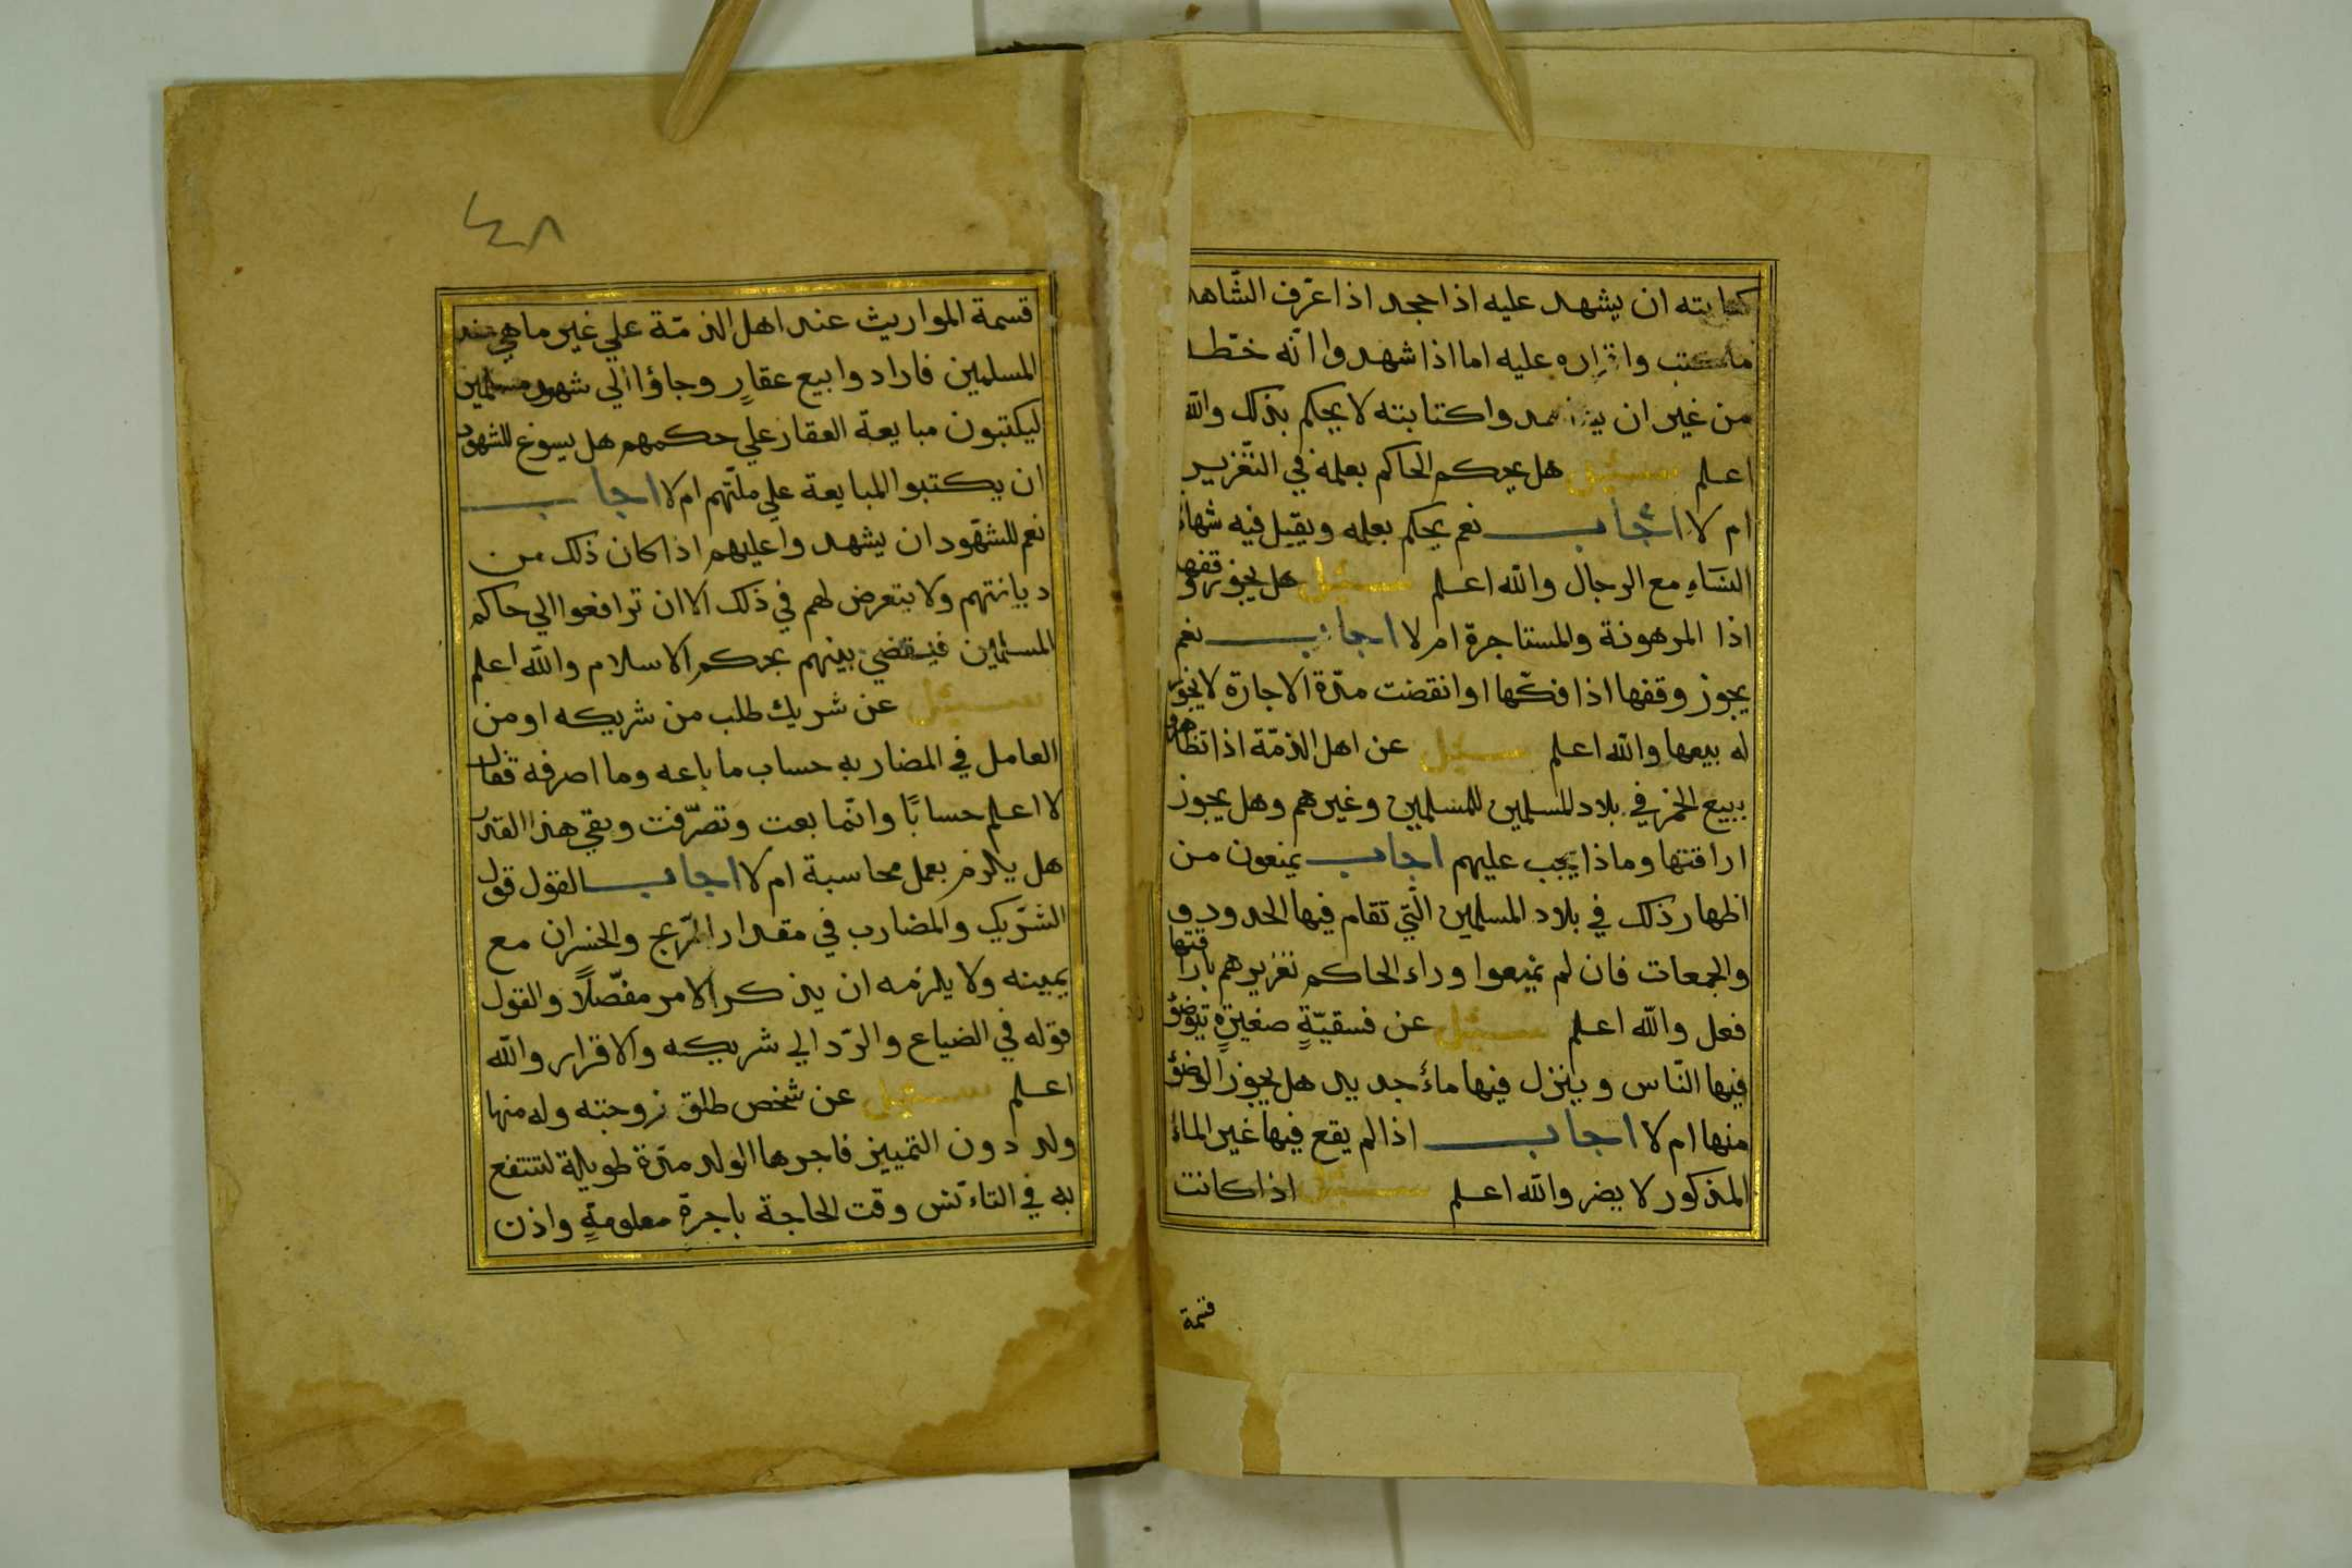 كتابته ان يشهد عليه اذا جحد اذا عرف الشّاهد
ما كتب واقراره عليه اما اذا شهدوا انّه خطّه
من غير ان يشاهدوا كتابته لا يحكم بذلك والله
اعلم سئيل هل يحكم الحاكم بعلمه في التّعزير
ام لا اجاب نعم يحكم بعلمه ويقبل فيه شهادة
النسَاءِ مع الرجال والله اعلم سئيل هل يجوز وقفها
اذا المرهونة والمستاجرة ام لا اجاب نعم
يجوز وقفها اذا فكّها او انقضت مدّة الاجارة لا يجوز
له بيعها والله اعلم سئيل عن اهل الذمّة اذا تظاهروا
ببيع الخمر في بلاد المسلمين للمسلمين وغيرهم وهل يجوز
اراقتها وماذا يجب عليهم اجاب يمنعون من
اظهار ذلك في بلاد المسلمين الّتي تقام فيها الحدود و
والجمعات فان لم يمنعوا وراء الحاكم تعزيرهم باراقتها
فعل والله اعلم سئيل عن فسقيّةٍ صغيرةٍ يتوضؤ
فيها النّاس وينزل فيها ماءٔ جديد هل يجوز الوضؤ
منها ام لا اجاب اذا لم يقع فيها غير الماءٔ
المذكور لا يضر والله اعلم سئيل اذا كانت
قتمة
٤٨
قسمة المواريث عند اهل الذمّة علي غير ما هي عند
المسلمين فارادوا بيع عقارٍ وجاؤا الي شهود مسلمين
ليكتبون مبايعة العقار علي حكمهم هل يسوغ للشهود
ان يكتبوا المبايعة علي ملّتهم ام لا اجاب
نعم للشهّود ان يشهدوا عليهم اذا كان ذلك من
ديانتهم ولا يتعرض لهم في ذلك الا ان ترافعوا الي حاكم
المسلمين فيقضي بينهم بحكم الاسلام والله اعلم
سئيل عن شريك طلب من شريكه او من
العامل في المضاربه حساب ما باعه وما اصرفه فقال
لا اعلم حسابًا وانّما بعت وتصرّفت وبقي هذا القدر
هل يلزم بعمل محاسبة ام لا اجاب القول قول
الشّريك والمضارب في مقدار الرّبح والخسران مع
يمينه ولا يلزمه ان يذكر الامر مفصّلًا والقول
قوله في الضياع والرّد الي شريكه والاقرار والله
اعلم سئيل عن شخص طلق زوجته وله منها
ولد دون التمييز فاجرها الولد مدّة طويلة لتنتفع
به في التاءنّس وقت الحاجة باجرةٍ معلومةٍ واذن